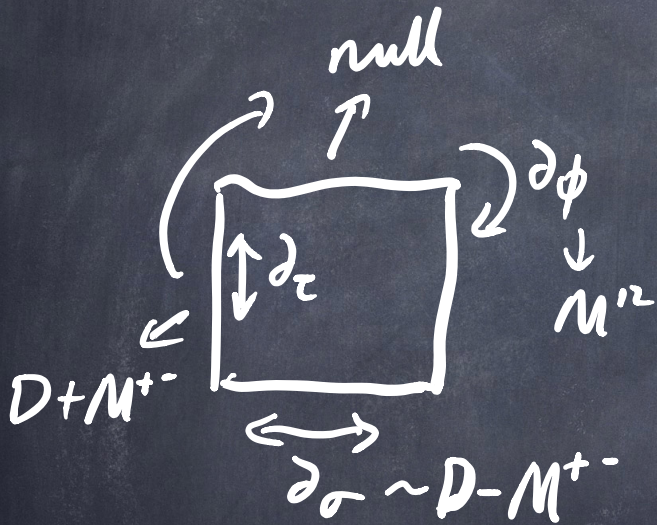 null
∂φ
∂τ
M¹²
D+M⁺⁻
∂σ ~ D-M⁺⁻